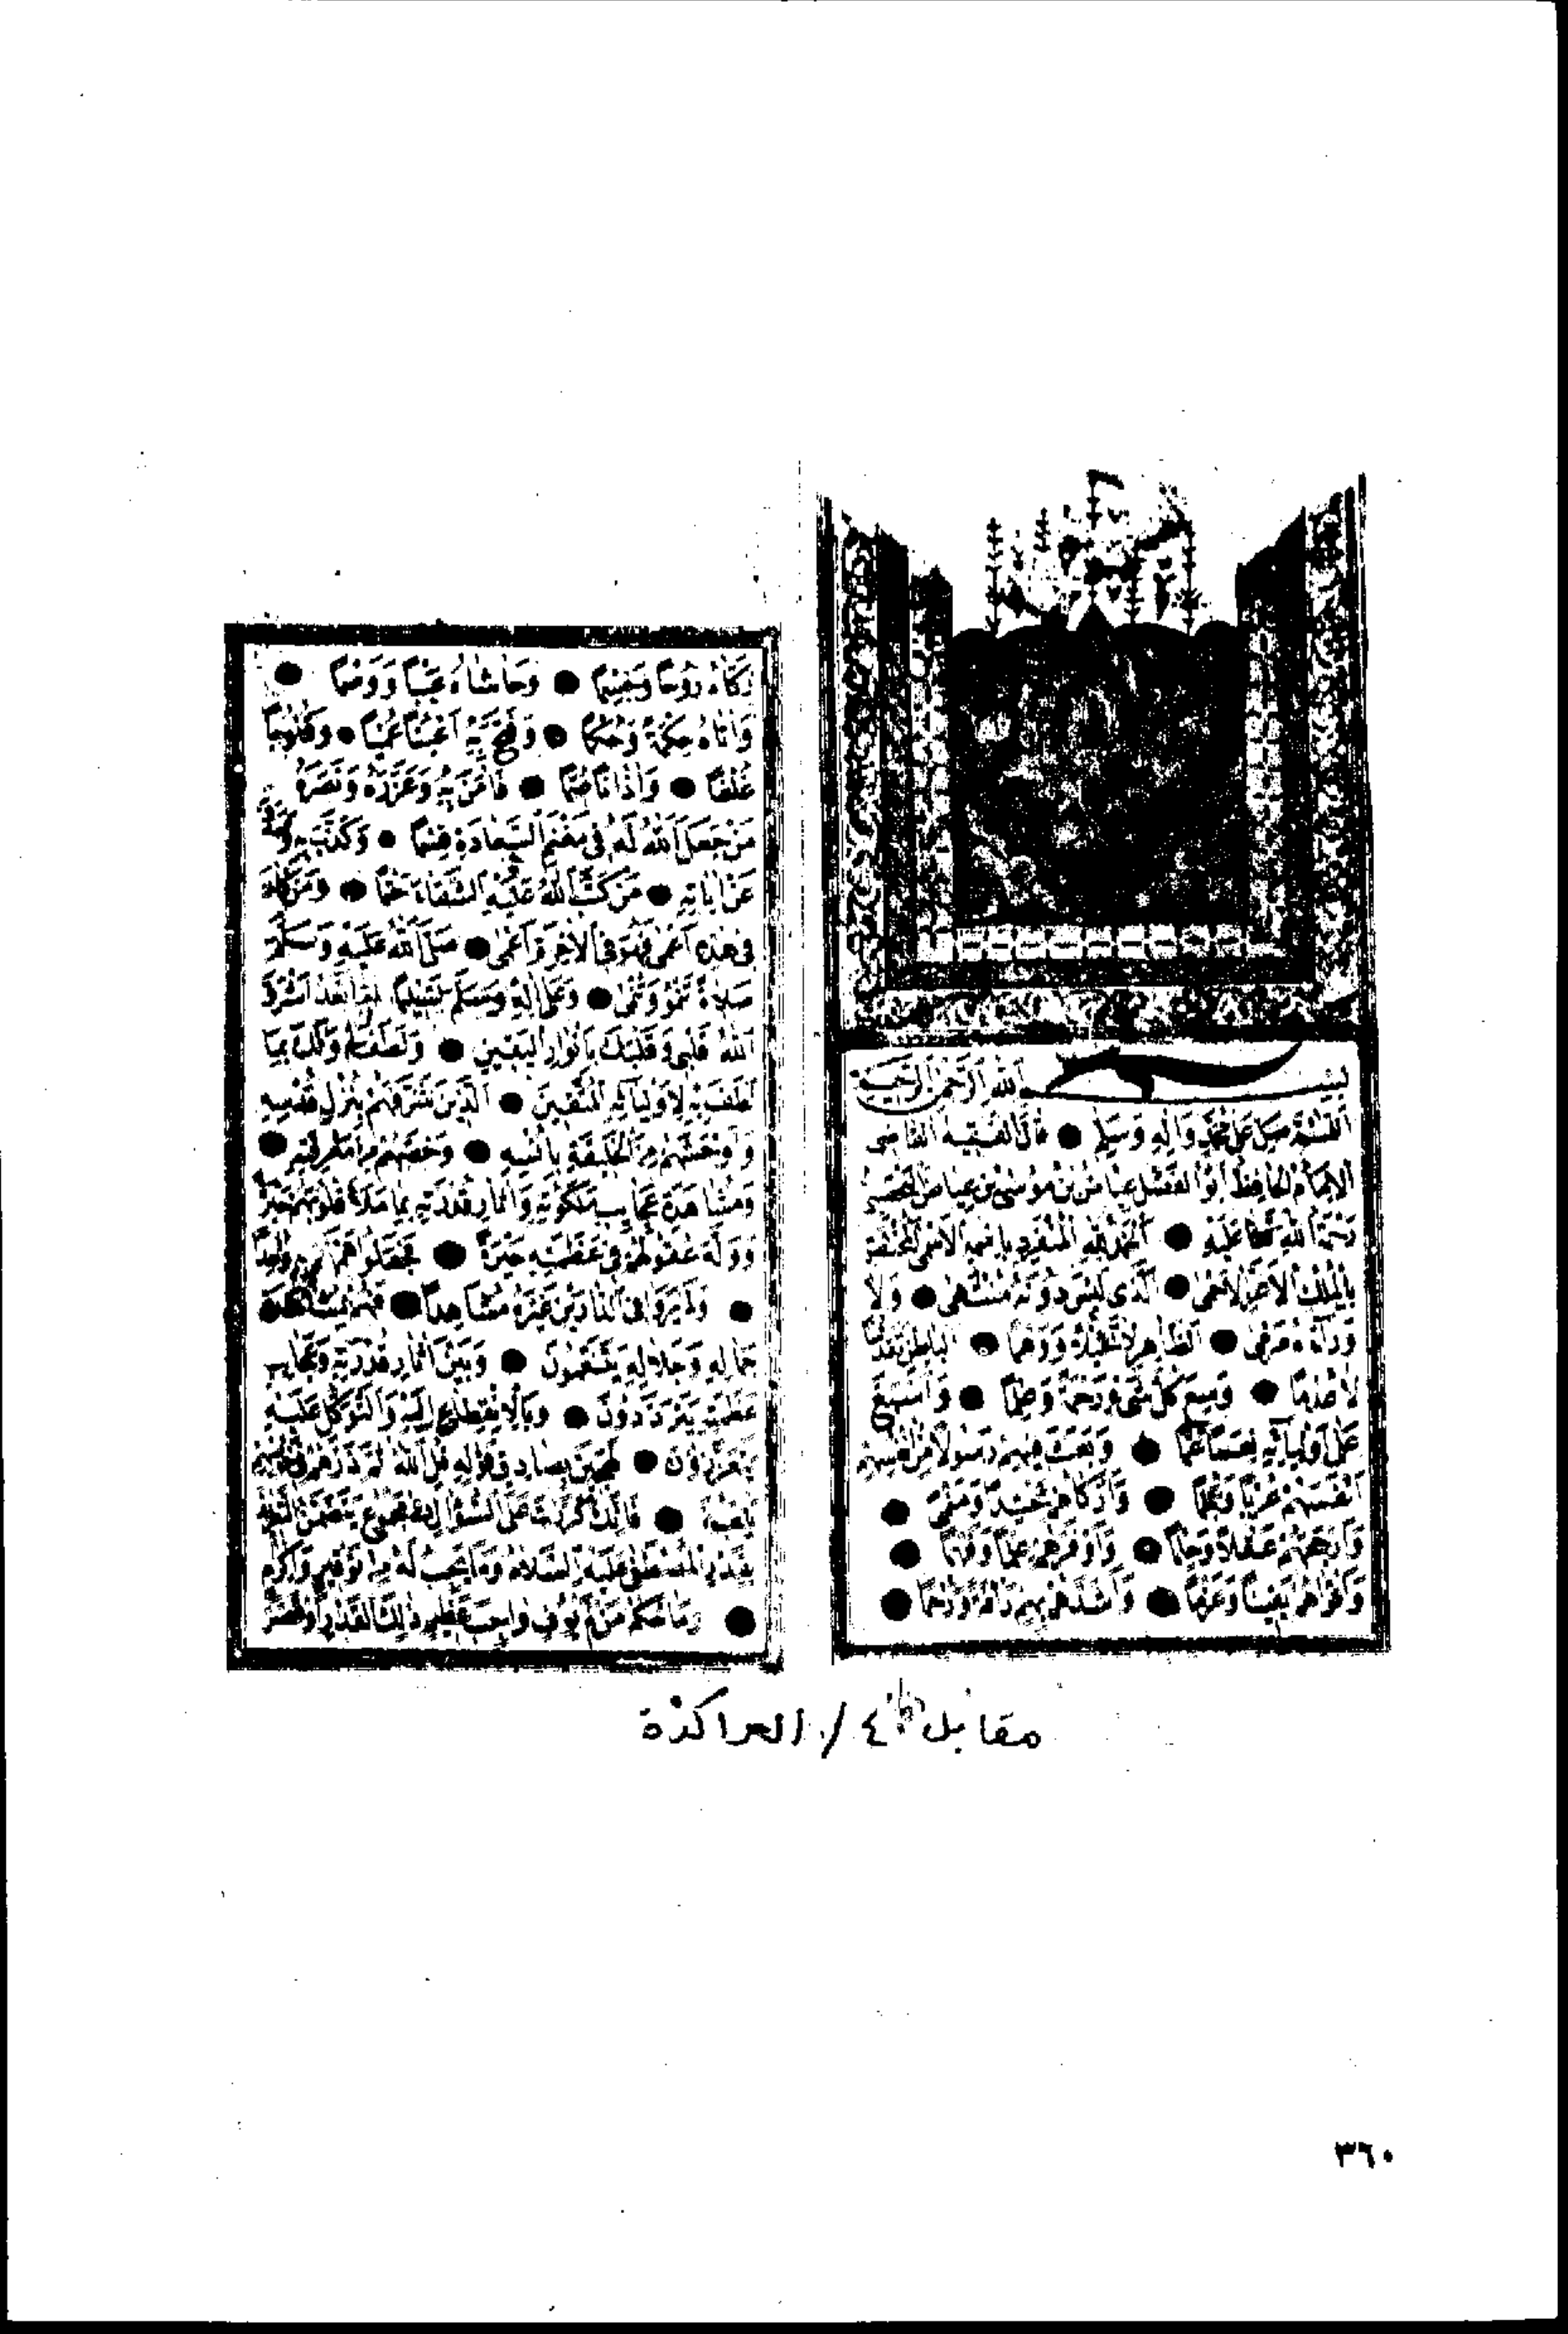 بسم الله الرحمن الرحيم
اللهم صل على محمد وآله وسلم ● قال الفقيه القاضي
الإمام الحافظ أبو الفضل عياض بن موسى بن عياض اليحصبي
رحمة الله تعالى عليه ● الحمد لله المنفرد باسمه الأسمى المختص
بالملك الأعز الأحمى ● الذي ليس دونه منتهى ● ولا
وراءه مرمى ● الظاهر لا تخيلا ووهما ● الباطن تقدسا
لا عدما ● وسع كل شيء رحمة وعلما ● وأسبغ
على أوليائه نعما عما ● وبعث فيهم رسولا من أنفسهم
أنفسهم عربا وعجما ● وأزكاهم محتدا ومنمى ●
وأرجحهم عقلا وحلما ● وأوفرهم علما وفهما ●
وأقواهم يقينا وعزما ● وأشدهم بهم رأفة ورحما ●
زكاه روحا وجسما ● وحاشاه عيبا ووصما ●
وآتاه حكمة وحكما ● وفتح به أعينا عميا ● وقلوبا
غلفا ● وآذانا صما ● فآمن به وعزره ونصره
من جعل الله له في مغنم السعادة قسما ● وكذب به
عن آياته ● من كتب الله عليه الشقاء حتما ● ومن كان
في هذه أعمى فهو في الآخرة أعمى ● صلى الله عليه وسلم
صلاة تنمو وتنمى ● وعلى آله وسلم تسليما أما بعد أشرق
الله قلبي وقلبك بأنوار اليقين ● ولطف لي ولك بما
لطف به لأوليائه المتقين ● الذين شرفهم بنزل قدسه
وأوحشهم من الخليقة بأنسه ● وخصهم من معرفته ●
ومشاهدة عجايب ملكوته وآثار قدرته بما ملأ قلوبهم حبرة
ووله عقولهم في عظمته حيرة ● فجعلوا همهم به واحدا
● ولم يروا في الدارين غيره مشاهدا ● فهم بمشاهدة
جماله وجلاله يتنعمون ● وبين آثار قدرته وعجايب
عظمته يترددون ● وبالانقطاع إليه والتوكل عليه
يتعززون ● لهجين بصادق قوله قل الله ثم ذرهم في خوضهم
يلعبون ● فإنك كررت علي السؤال في مجموع يتضمن التعريف
بقدر المصطفى عليه السلام وما يجب له من توقير وإكرام
● وما حكم من لم يوف واجب عظيم ذلك القدر أو قصر
مقابل ٤ / المراكزة
٣٦٠